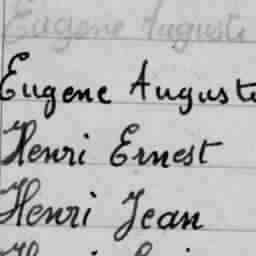 Eugene Auguste
Eugene Auguste
Henri Ernest
Henri Jean